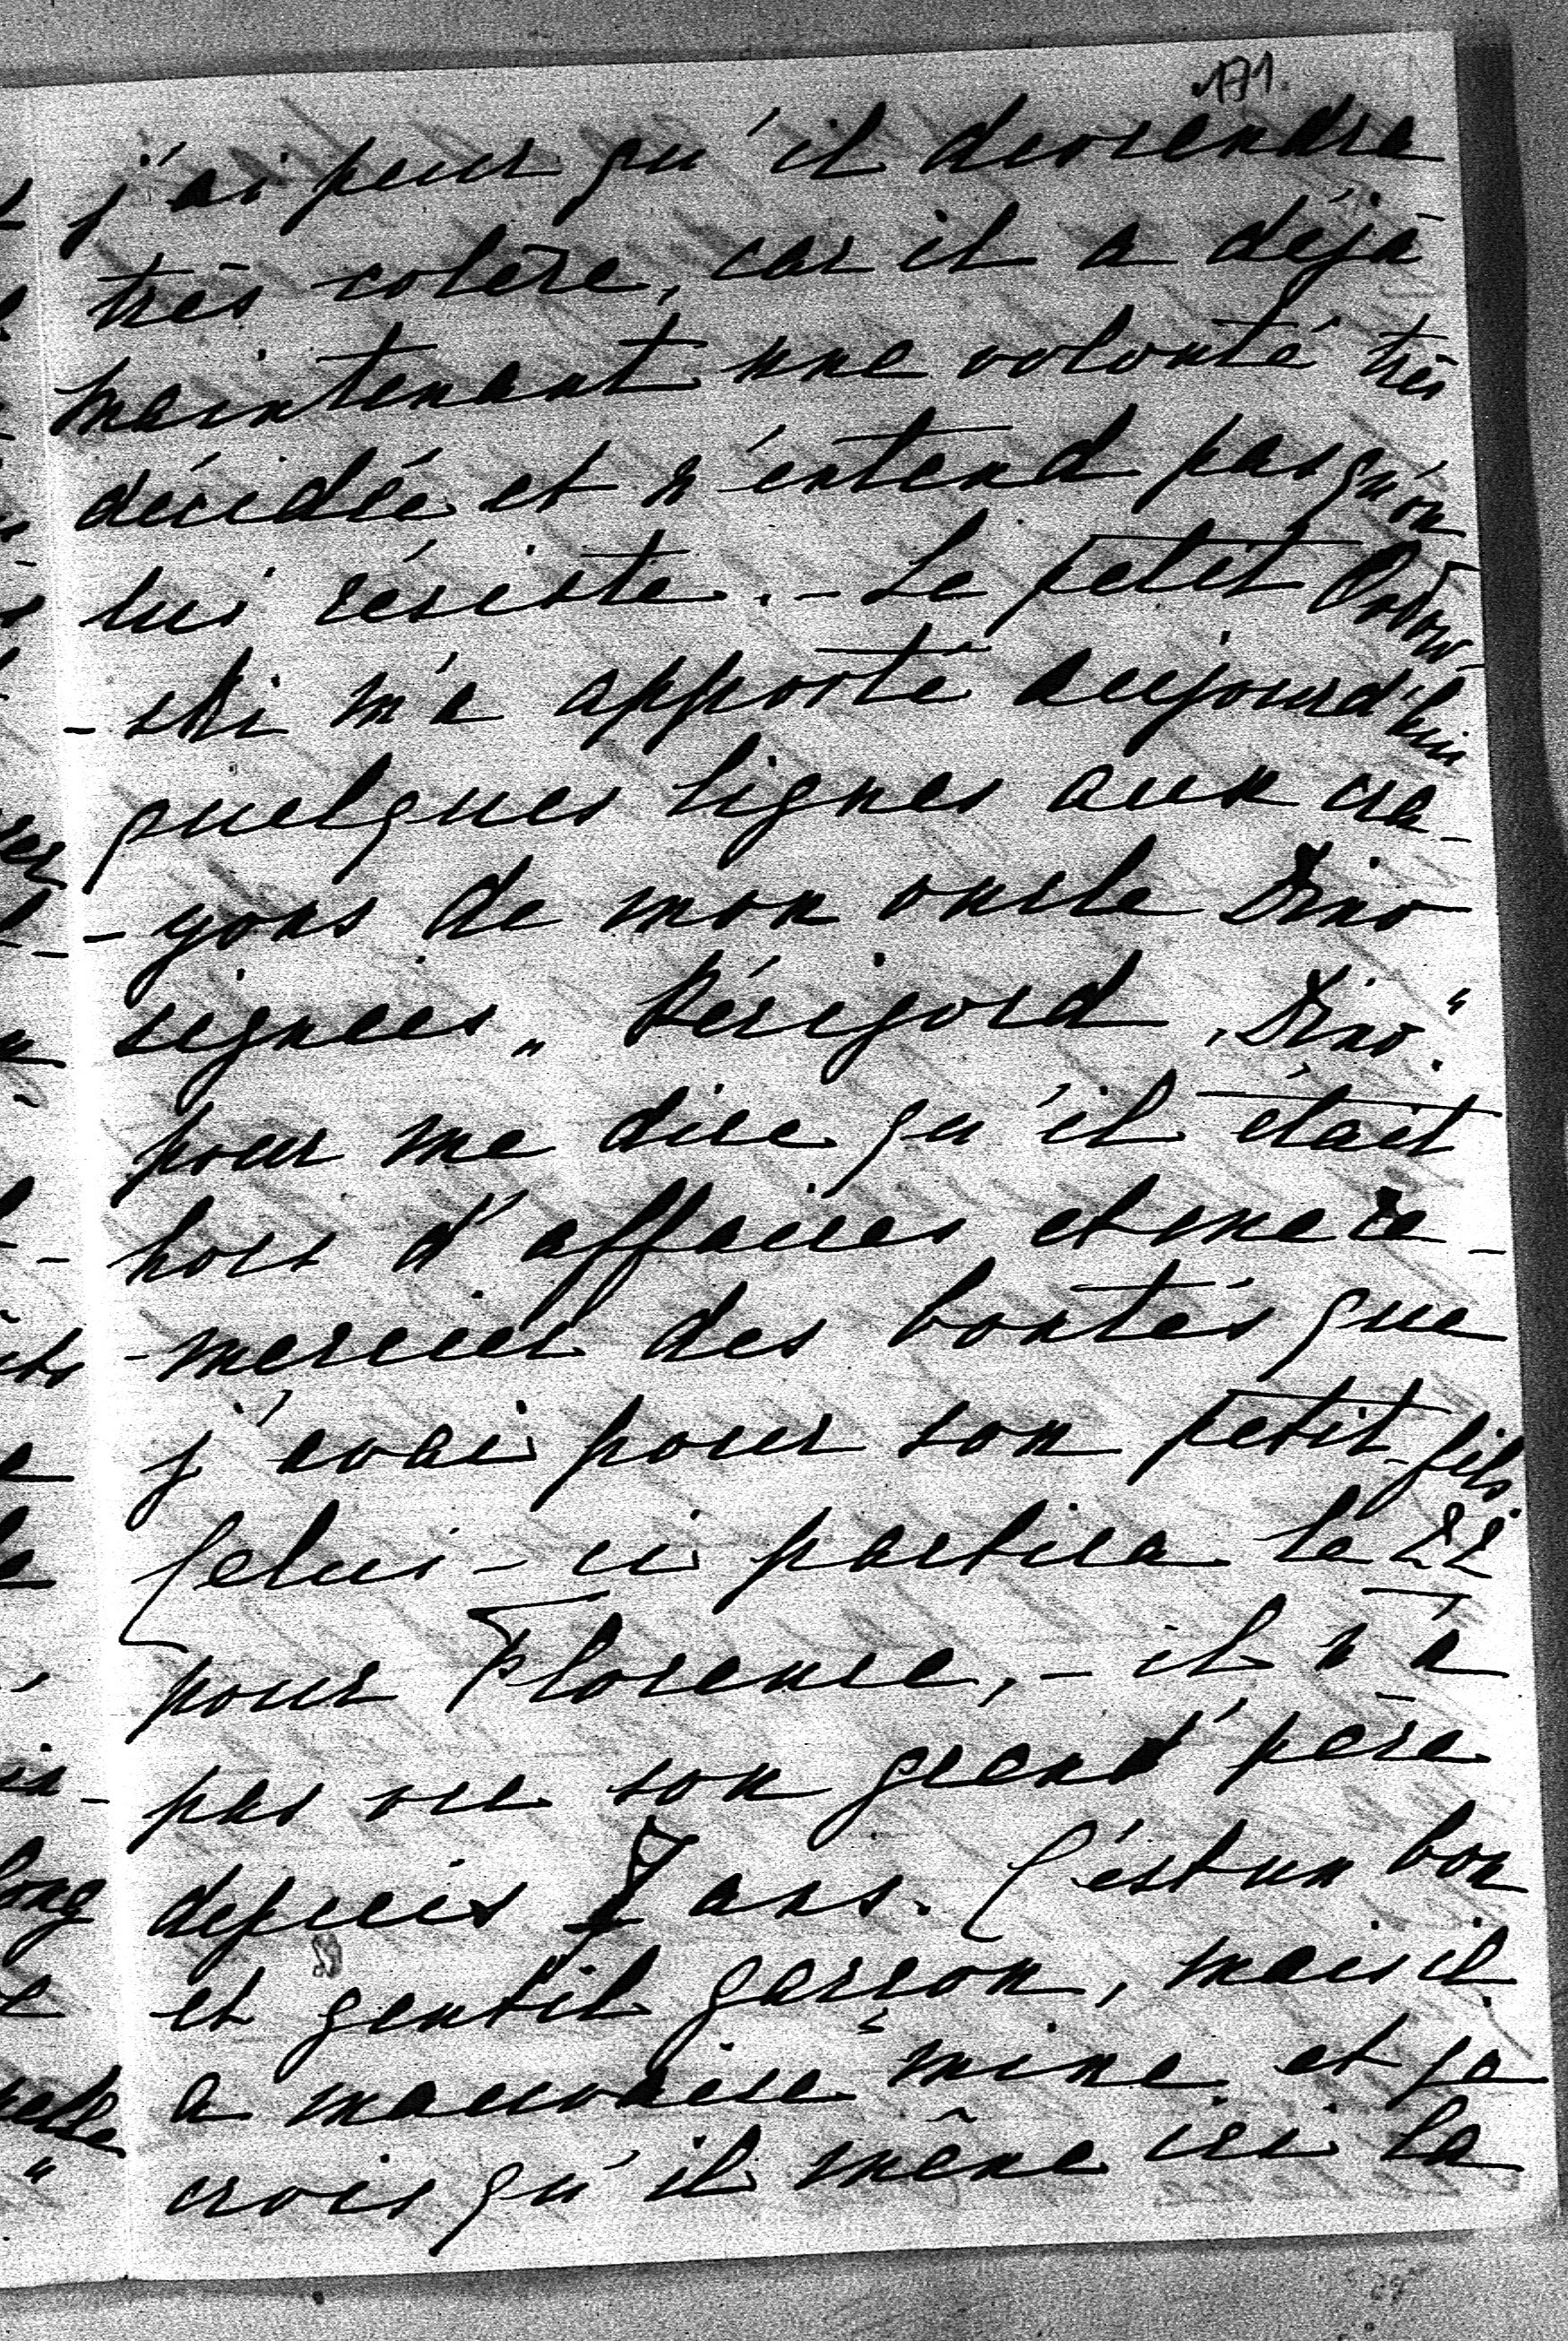 171.
j'ai peur qu'il deviendra
très colère, car il a déjà
maintenant une volonté très
décidée et n'entend pas qu'on
lui résiste. - Le petit
- ski m'a apporté aujourd'hui
quelques lignes aux cra-
- yons de mon oncle Dino
signées „ Périgord, Dino“.
pour me dire qu'il était
hors d'affaires et me re-
- mercier des bontés que
j'avais pour son petit-fils
Celui-ci partira le 22
pour Florence, - il n'a
pas vu son grand'père
depuis 7 ans. C'est un bon
et gentil garçon, mais il
a mauvaise mine et je
crois qu'il mène ici la